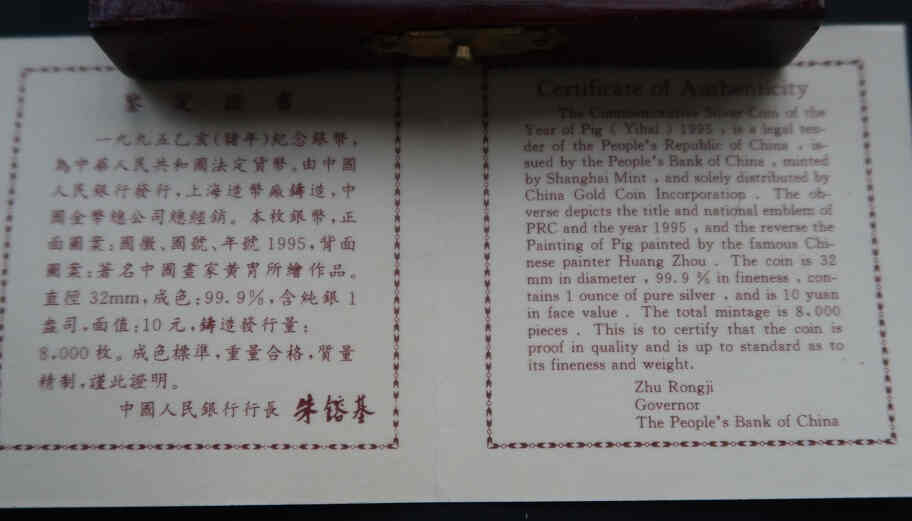 鑒定證書
一九九五乙亥(豬年)紀念銀幣,
為中華人民共和國法定貨幣。由中國
人民銀行發行,上海造幣廠鑄造,中
國金幣總公司總經銷。本枚銀幣,正
面圖案:國徽、國號、年號1995,背面
圖案:著名中國畫家黃胄所繪作品。
直徑32mm,成色:99.9%,含純銀1
盎司,面值:10元,鑄造發行量:
8,000枚。成色標準,重量合格,質量
精制,謹此證明。
中國人民銀行行長 朱镕基
Certificate of Authenticity
The Commemorative Silver Coin of the
Year of Pig ( Yihai ) 1995 , is a legal ten-
der of the People's Republic of China , is-
sued by the People's Bank of China , minted
by Shanghai Mint , and solely distributed by
China Gold Coin Incorporation . The ob-
verse depicts the title and national emblem of
PRC and the year 1995 , and the reverse the
Painting of Pig painted by the famous Chi-
nese painter Huang Zhou . The coin is 32
mm in diameter , 99.9 % in fineness , con-
tains 1 ounce of pure silver , and is 10 yuan
in face value . The total mintage is 8,000
pieces . This is to certify that the coin is
proof in quality and is up to standard as to
its fineness and weight.
Zhu Rongji
Governor
The People's Bank of China